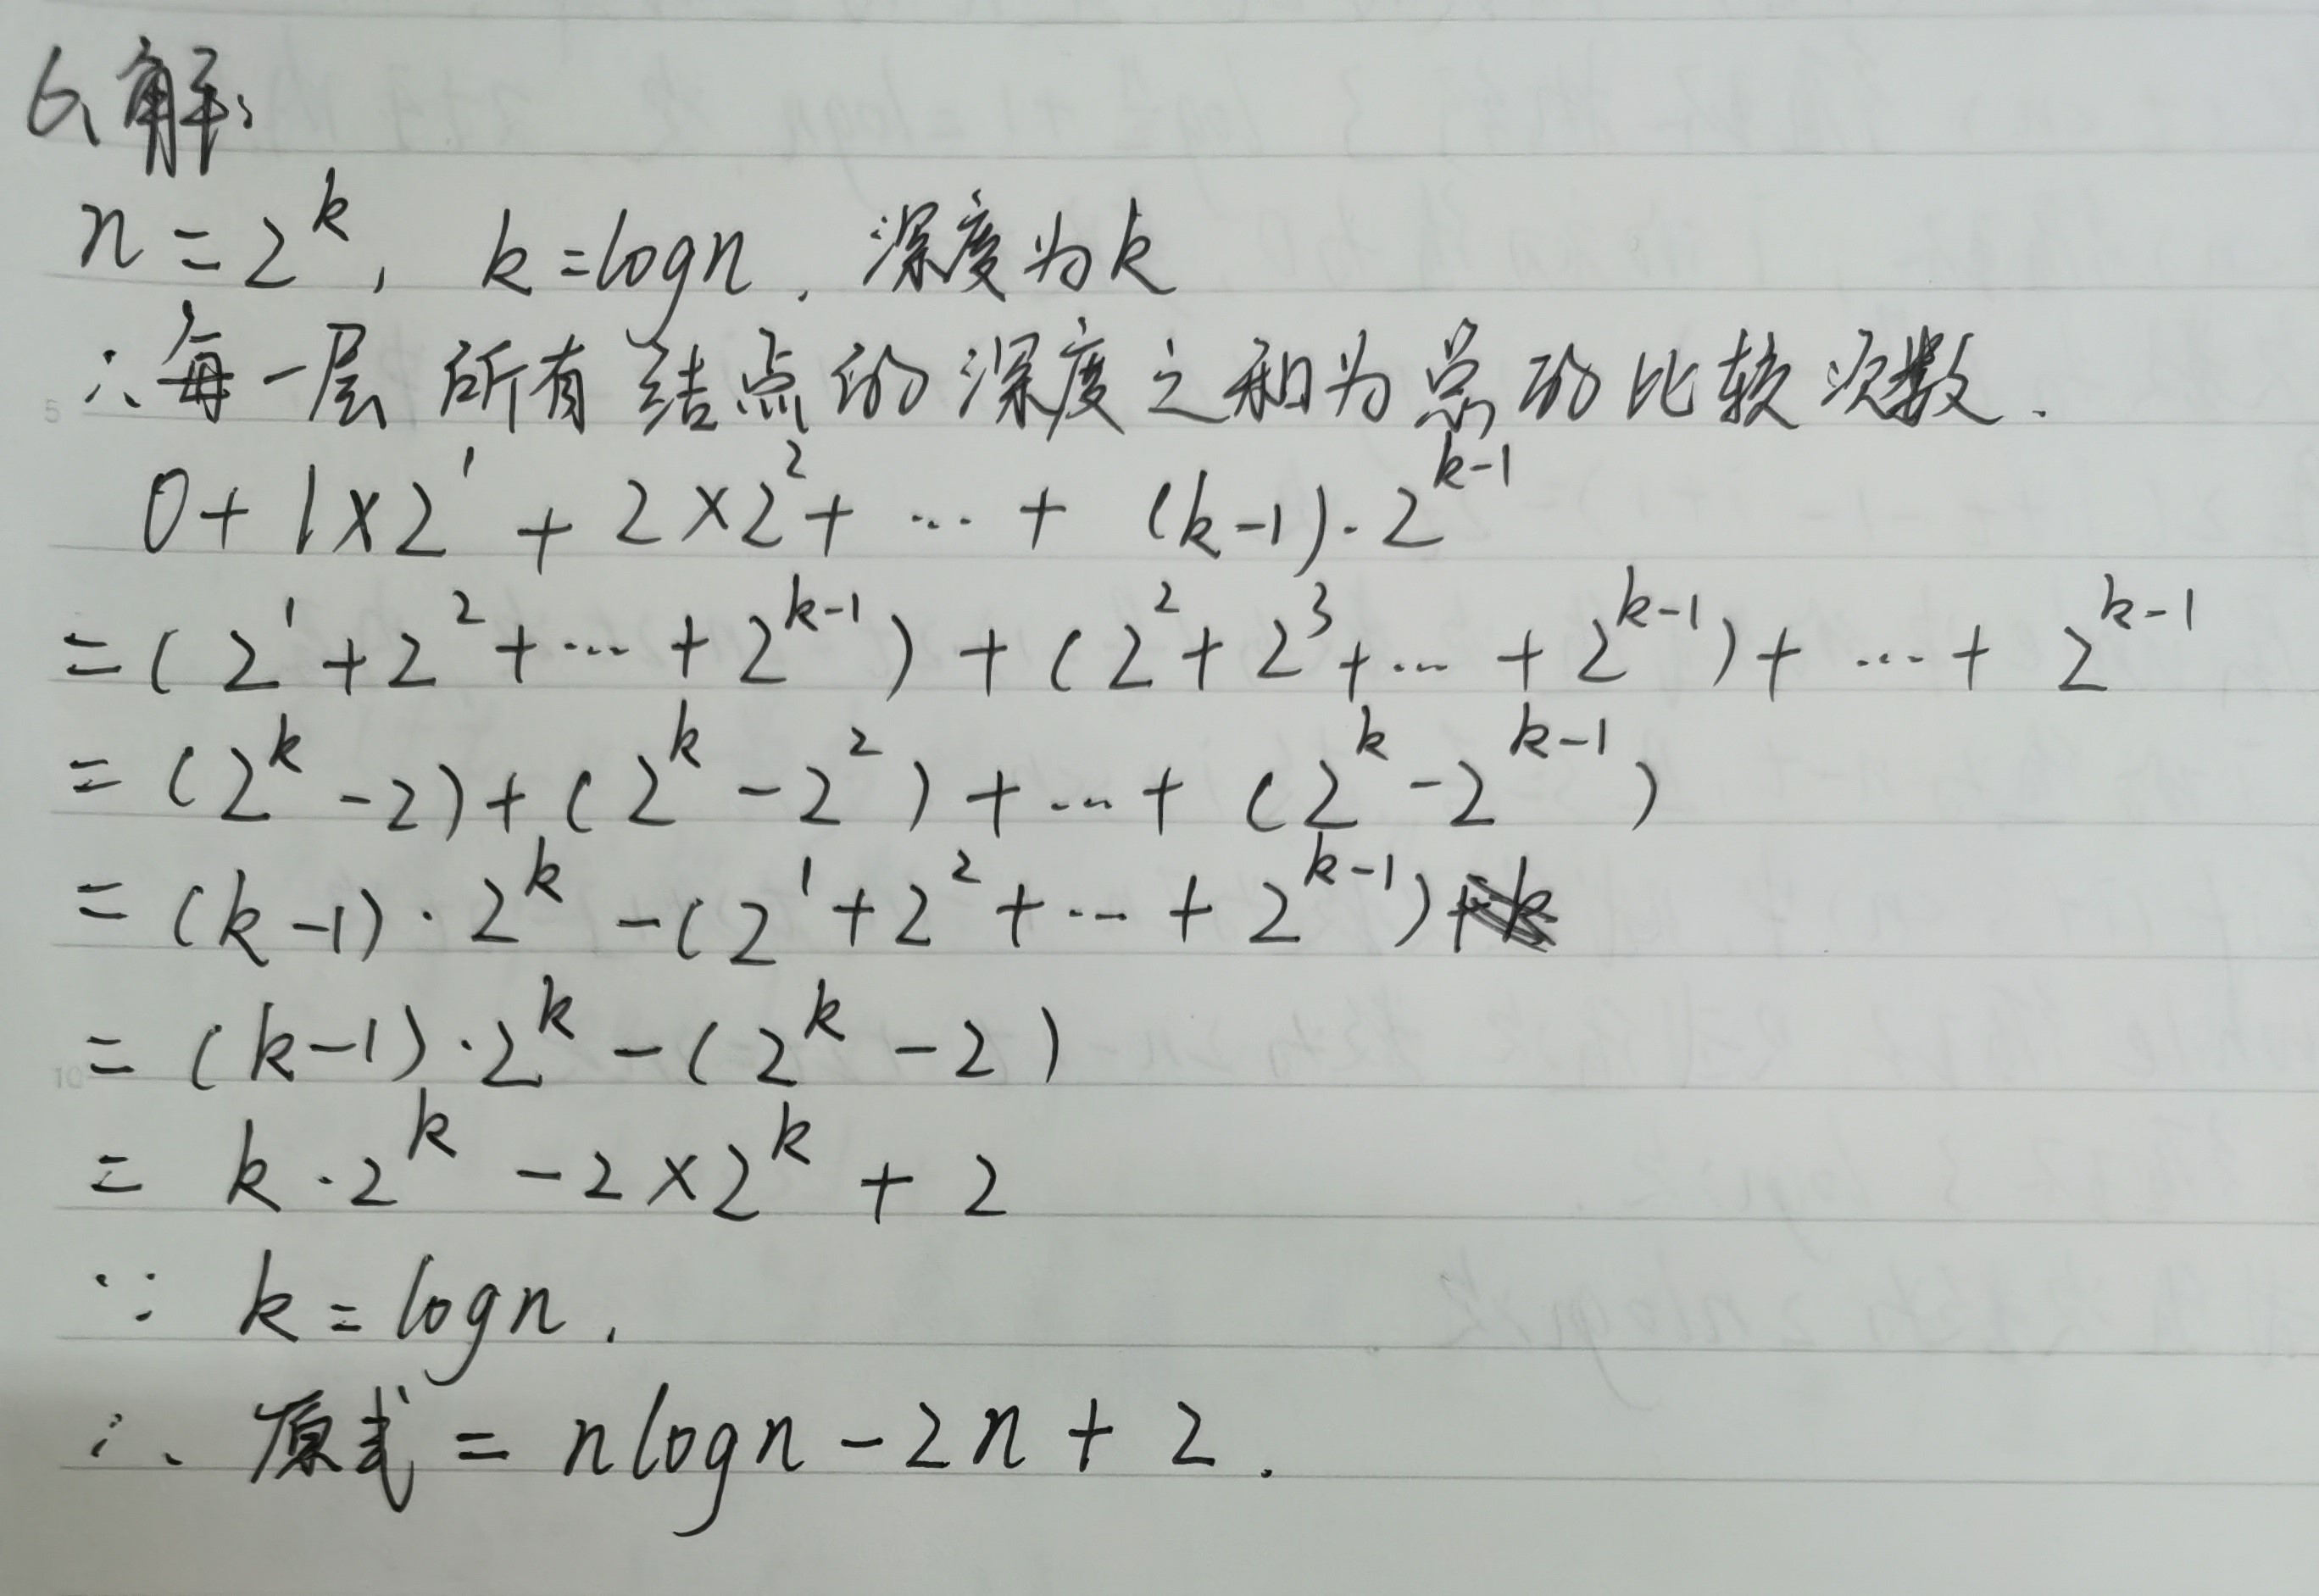 6、解:
n = 2^k, k = logn, 深度为k
∴每一层所有结点的深度之和为总的比较次数.
0 + 1×2^1 + 2×2^2 + … + (k-1)·2^{k-1}
= (2^1 + 2^2 + … + 2^{k-1}) + (2^2 + 2^3 + … + 2^{k-1}) + … + 2^{k-1}
= (2^k - 2) + (2^k - 2^2) + … + (2^k - 2^{k-1})
= (k-1)·2^k - (2^1 + 2^2 + … + 2^{k-1})
= (k-1)·2^k - (2^k - 2)
= k·2^k - 2×2^k + 2
∵ k = logn,
∴ 原式 = nlogn - 2n + 2.
5
10